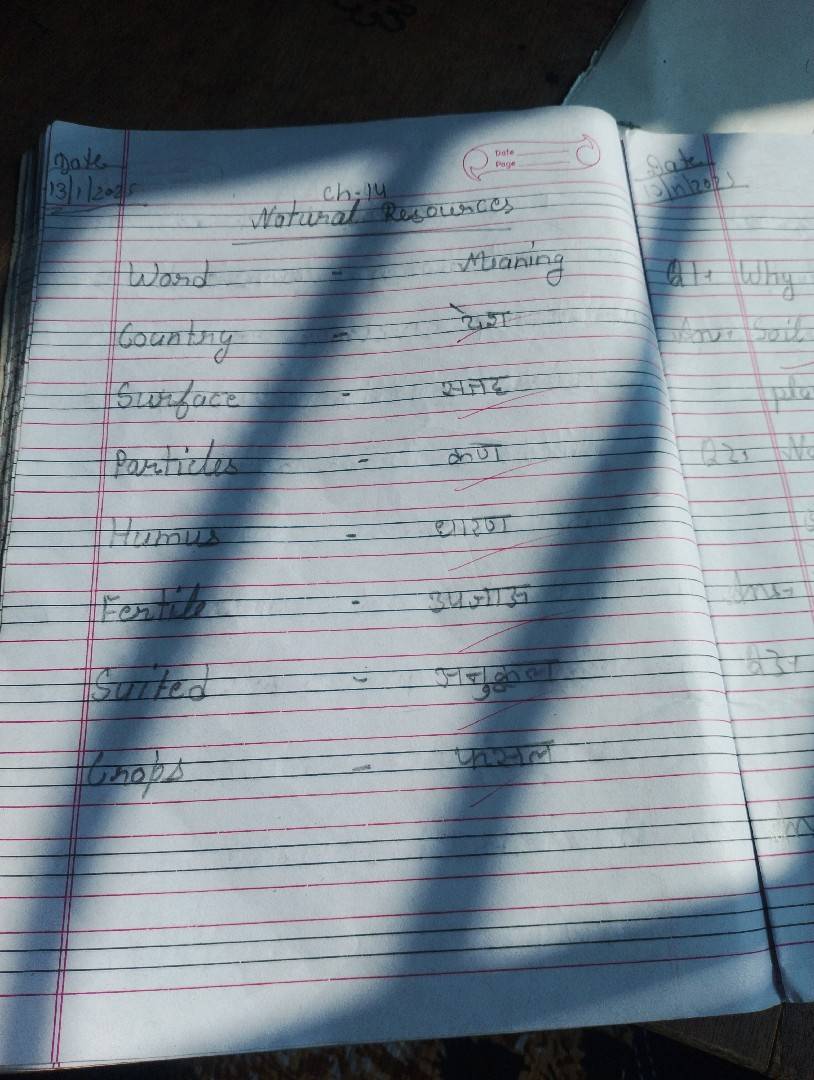 Date
13/1/2025
Date
Page
Ch-14
Natural Resources
Word - Meaning
Country - देश
Surface - सतह
Particles - कण
Humus - धारण
Fertile - उपजाऊ
Suited - अनुकूल
Crops - फसल
Date
Q1. Why
Ans. Soil
Q2.
Ans-
Q3.